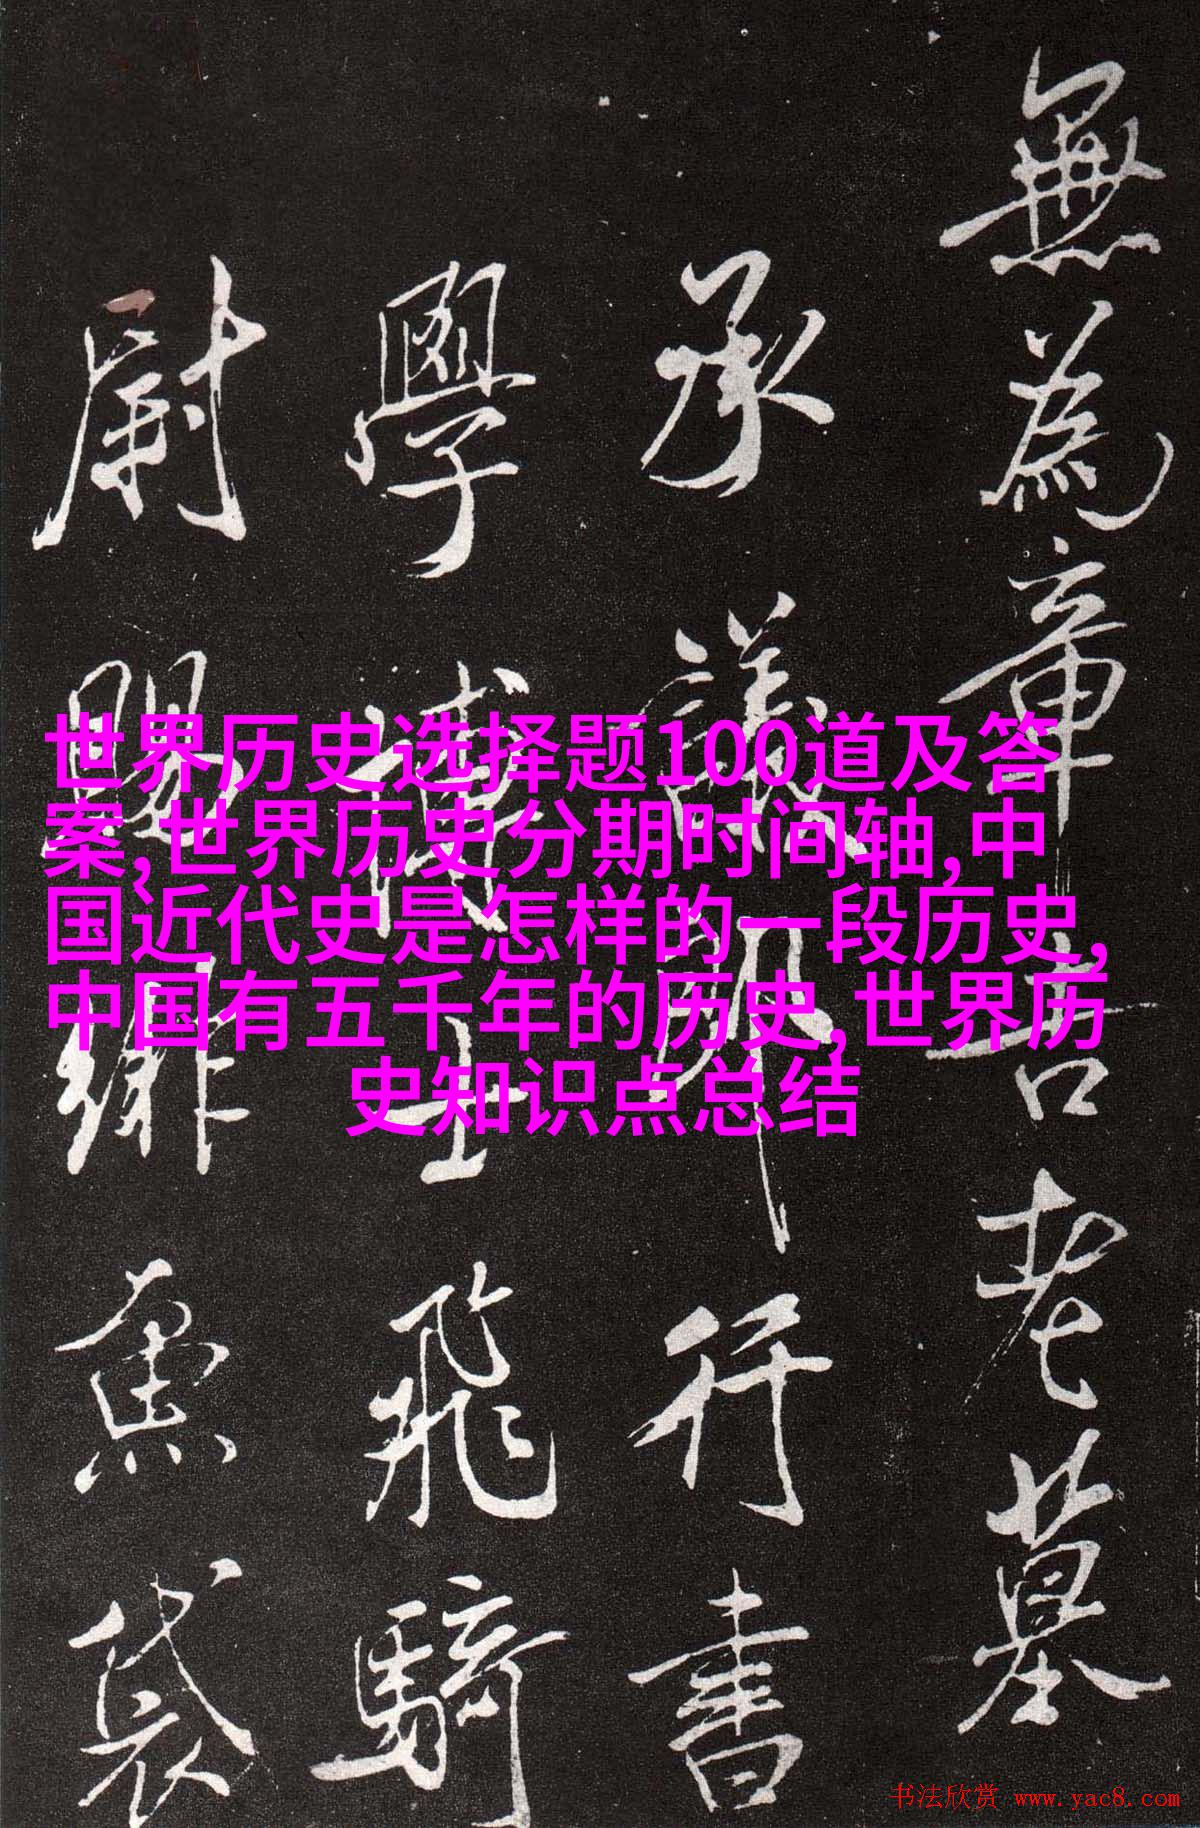 無為章吉老墓
承議郎行書
學博士飛騎
尉賜緋魚袋
世界历史选择题100道及答
案,世界历史分期时间轴,中
国近代史是怎样的一段历史,
中国有五千年的历史,世界历
史知识点总结
书法欣赏 www.yac8.com